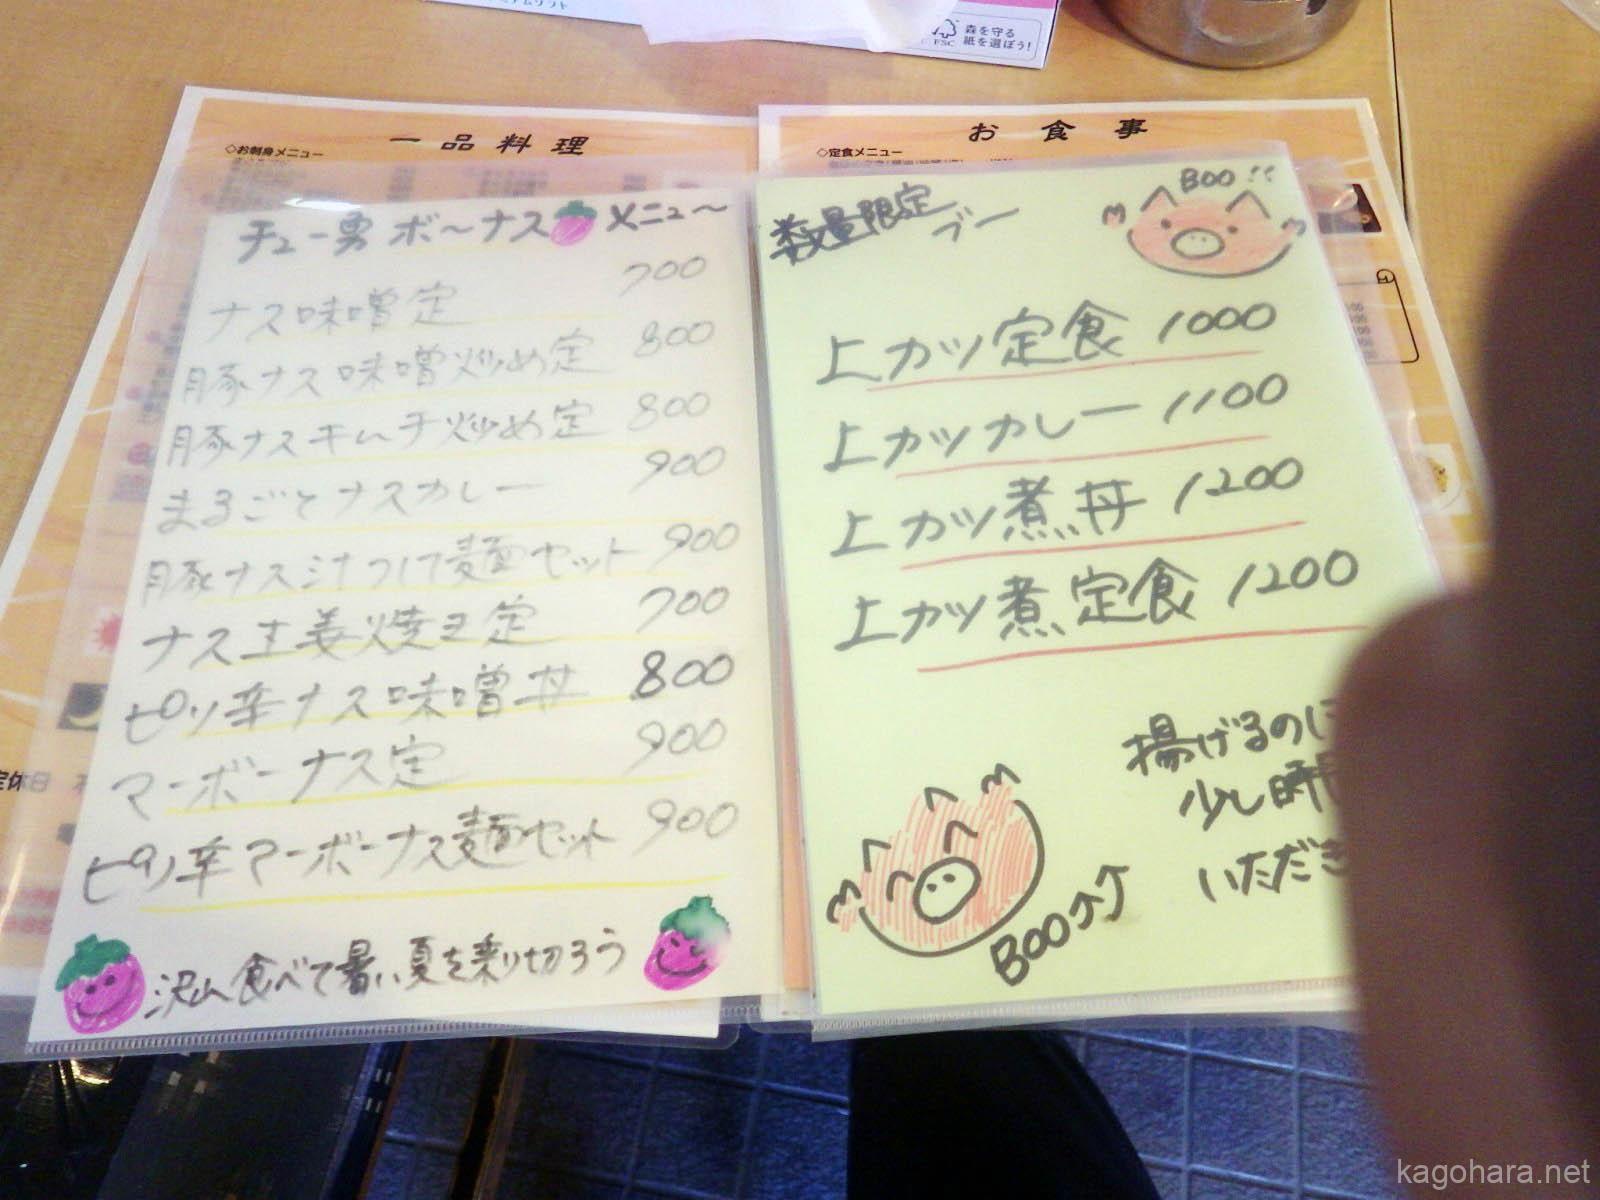 森を守る
紙を選ぼう!
FSC
一品料理
◇お刺身メニュー
チュー勇 ボ〜ナス メニュ〜
ナス味噌定 700
豚ナス味噌炒め定 800
豚ナスキムチ炒め定 800
まるごとナスカレー 900
豚ナス汁つけ麺セット 900
ナス生姜焼き定 700
ピリ辛ナス味噌丼 800
マーボーナス定 900
ピリ辛マーボーナス麺セット 900
沢山食べて暑い夏を乗り切ろう
定休日
お食事
◇定食メニュー
数量限定
ブー
BOO!!
上カツ定食 1000
上カツカレー 1100
上カツ煮丼 1200
上カツ煮定食 1200
揚げるのに
少し時
いただき
BOO↑↑
kagohara.net